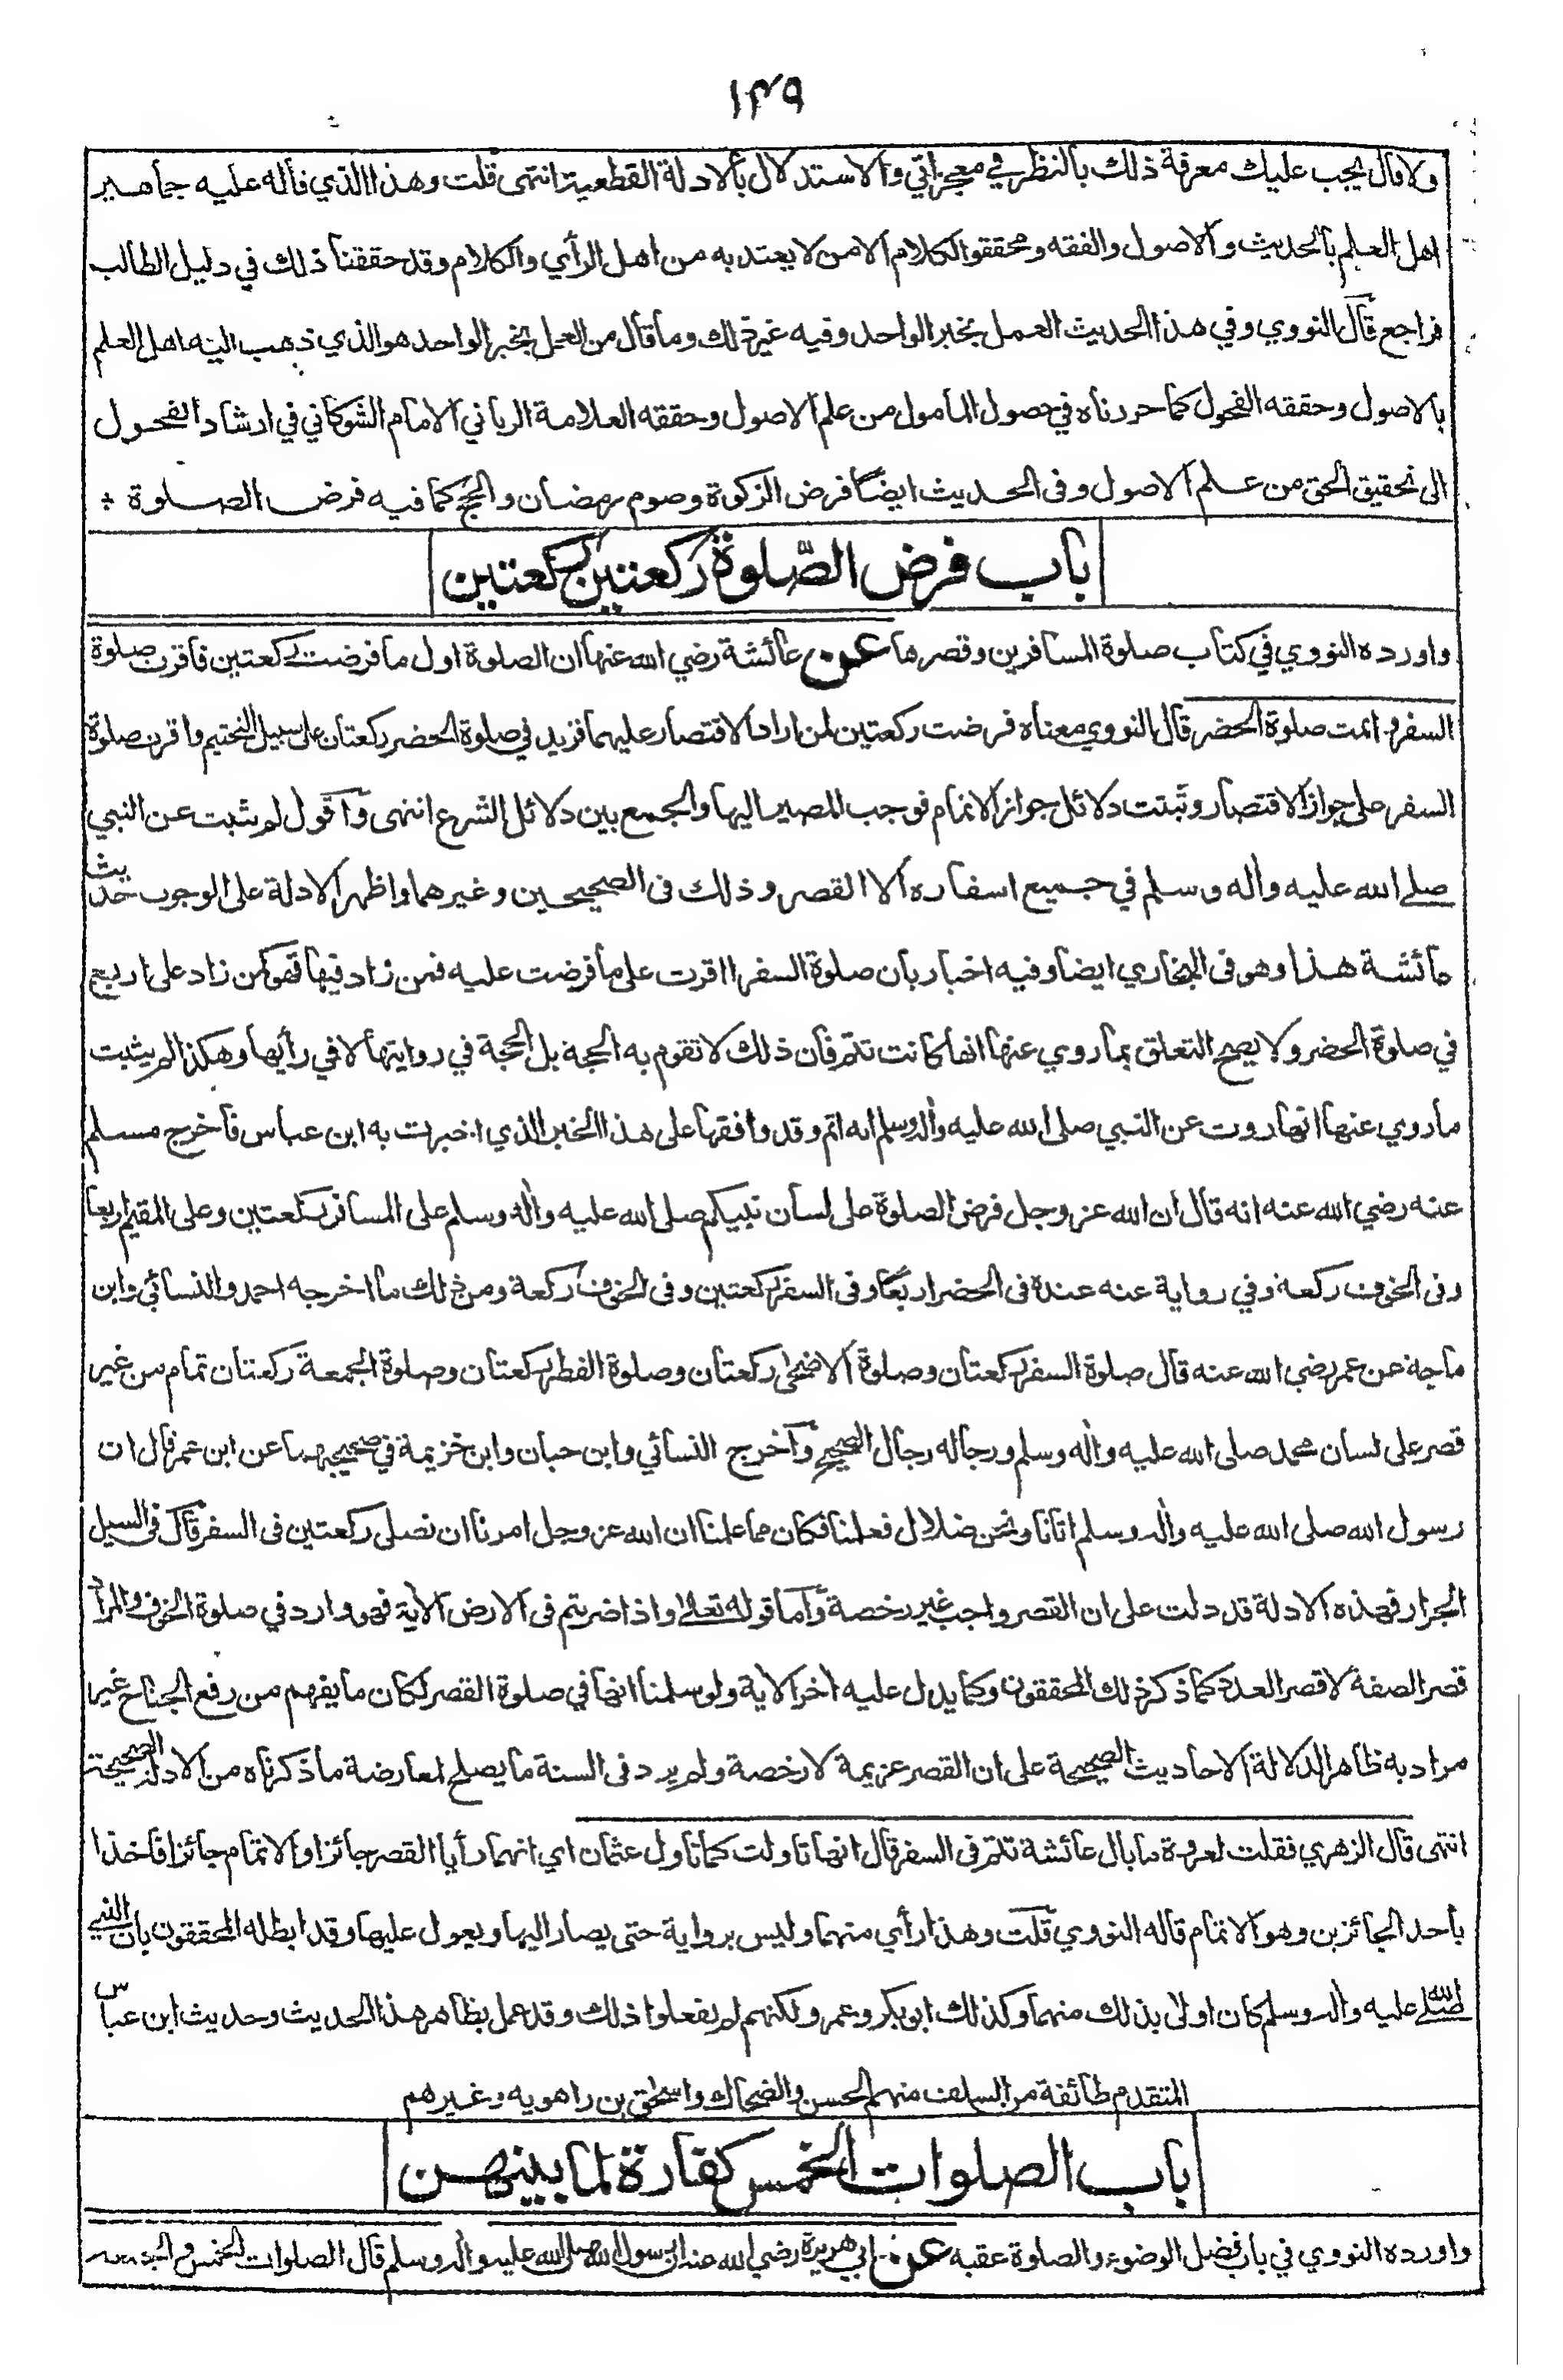 ١٣٩
ولا قال يجب عليك معرفة ذلك بالنظر في معجزاتي والاستدلال بالادلة القطعية انتهى قلت وهذا الذي قاله عليه جماهير
اهل العلم بالحديث والاصول والفقه ومحققوا الكلام الا من لا يعتد به من اهل الرأي والكلام وقد حققنا ذلك في دليل الطالب
فراجع قال النووي وفي هذا الحديث العمل بخبر الواحد وفيه غير ذلك وما قال من العمل بخبر الواحد هو الذي ذهب اليه اهل العلم
بالاصول وحققه الفحول كما حررناه في حصول المامول من علم الاصول وحققه العلامة الرباني الامام الشوكاني في ارشاد الفحول
الى تحقيق الحق من علم الاصول وفى الحديث ايضاً فرض الزكوة وصوم رمضان والحج كما فيه فرض الصلوة ÷
باب فرض الصّلوة ركعتين ركعتين
واورده النووي في كتاب صلوة المسافرين وقصرها عن عائشة رضي الله عنها ان الصلوة اول ما فرضت ركعتين فاقرت صلوة
السفر واتمت صلوة الحضر قال النووي معناه فرضت ركعتين لمن اراد الاقتصار عليهما فزيد في صلوة الحضر ركعتان على سبيل التحتيم واقرت صلوة
السفر على جواز الاقتصار وثبتت دلائل جواز الاتمام فوجب المصير اليها والجمع بين دلائل الشرع انتهى واقول لم يثبت عن النبي
صلے الله عليه واله وسلم في جميع اسفاره الا القصر وذلك فى الصحيحين وغيرهما واظهر الادلة على الوجوب حديث
عائشة هذا وهو فى البخاري ايضا وفيه اخبار بان صلوة السفر اقرت على ما فرضت عليه فمن زاد فيها فهو كمن زاد على اربع
في صلوة الحضر ولا يصح التعلق بما روي عنها انها كانت تتم فان ذلك لا تقوم به الحجة بل الحجة في روايتها لا في رأيها وهكذا لم يثبت
ما روي عنها انها روت عن النبي صلى الله عليه واله وسلم انه اتم وقد وافقها على هذا الخبر الذي اخبرت به ابن عباس فاخرج مسلم
عنه رضي الله عنه انه قال ان الله عز وجل فرض الصلوة على لسان نبيكم صلى الله عليه واله وسلم على المسافر ركعتين وعلى المقيم اربعا
وفى الخوف ركعة وفي رواية عنه عنده فى الحضر اربعًا وفى السفر ركعتين وفى الخوف ركعة ومن ذلك ما اخرجه احمد والنسائي وابن
ماجه عن عمر رضي الله عنه قال صلوة السفر ركعتان وصلوة الاضحى ركعتان وصلوة الفطر ركعتان وصلوة الجمعة ركعتان تمام من غير
قصر على لسان محمد صلى الله عليه واله وسلم ورجاله رجال الصحيح وآخرج النسائي وابن حبان وابن خزيمة في صحيحيهما عن ابن عمر قال ان
رسول الله صلى الله عليه واله وسلم اتانا ونحن ضلال فعلمنا فكان مما علمنا ان الله عز وجل امرنا ان نصلى ركعتين فى السفر قال فى السيل
الجرار فهذه الادلة قد دلت على ان القصر واجب غير رخصة وآما قوله تعالى واذا ضربتم فى الارض الآية فهو وارد في صلوة الخوف والمراد
قصر الصفة لا قصر العدد كما ذكر ذلك المحققون وكما يدل عليه اٰخر الآية ولو سلمنا انها في صلوة القصر لكان ما يفهم من رفع الجناح غير
مراد به ظاهر الدلالة الاحاديث الصحيحة على ان القصر عزيمة لا رخصة ولم يرد فى السنة ما يصلح لمعارضة ما ذكرناه من الادلة الصحيحة
انتهى قال الزهري فقلت لعروة ما بال عائشة تتم فى السفر قال انها تاولت كما تاول عثمان اي انهما رأيا القصر جائزا والاتمام جائزا فاخذا
باحد الجائزين وهو الاتمام قاله النووي قلت وهذا رأي منهما وليس برواية حتى يصار اليها ويعول عليها وقد ابطله المحققون بان النبي
صلے الله عليه واله وسلم كان اولى بذلك منهما وكذلك ابو بكر وعمر ولكنهم لم يفعلوا ذلك وقد عمل بظاهر هذا الحديث وحديث ابن عباس
المتقدم طائفة من السلف منهم الحسن والضحاك واسحٰق بن راهويه وغيرهم
باب الصلوات الخمس كفارة لما بينهن
واورده النووي في باب فضل الوضوء والصلوة عقبه عن ابي هريرة رضي الله عنه ان رسول الله صلى الله عليه واله وسلم قال الصلوات الخمس والجمعة